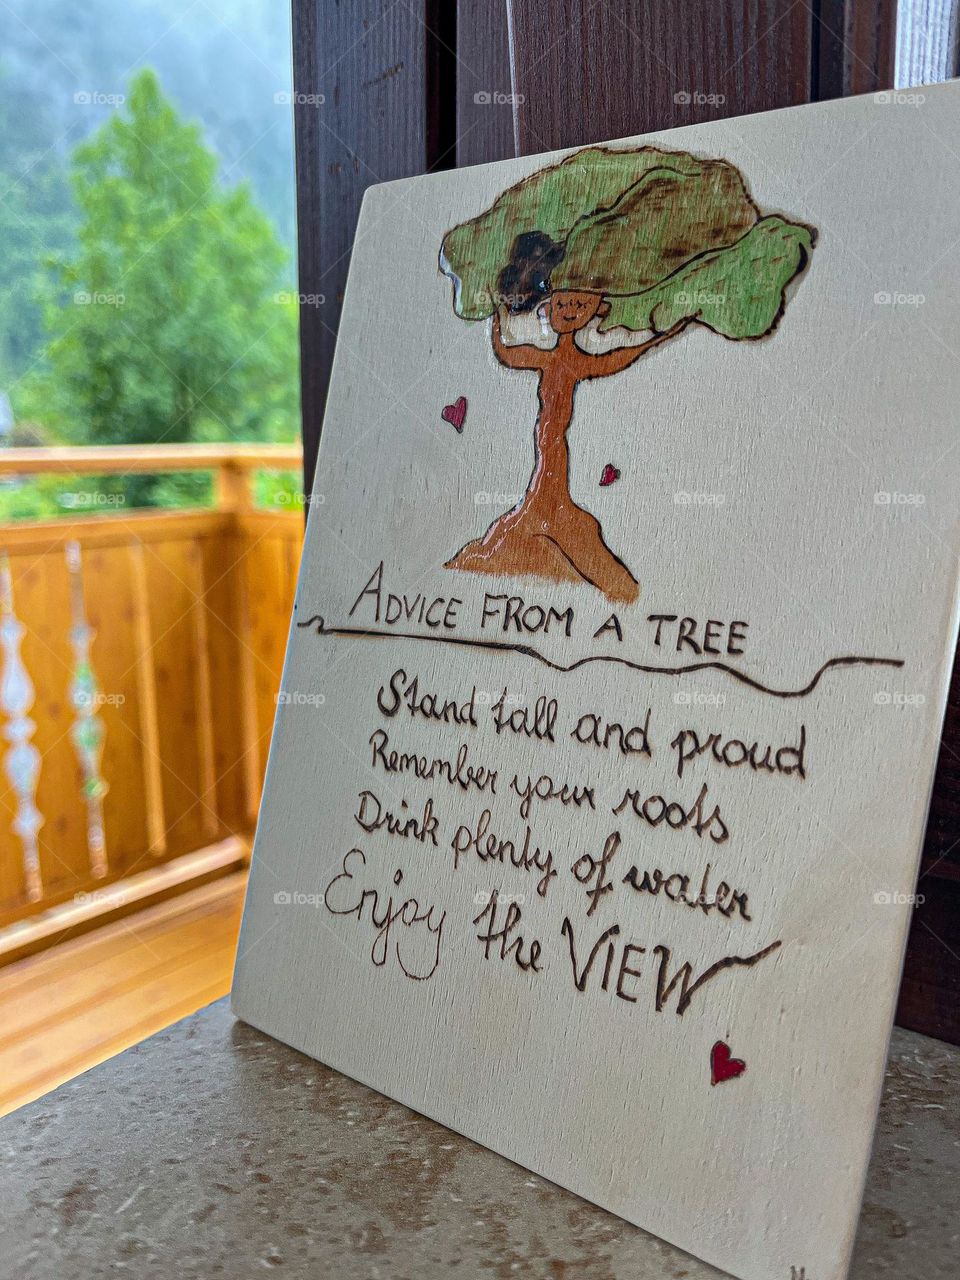 ADVICE FROM A TREE
Stand tall and proud
Remember your roots
Drink plenty of water
Enjoy the VIEW